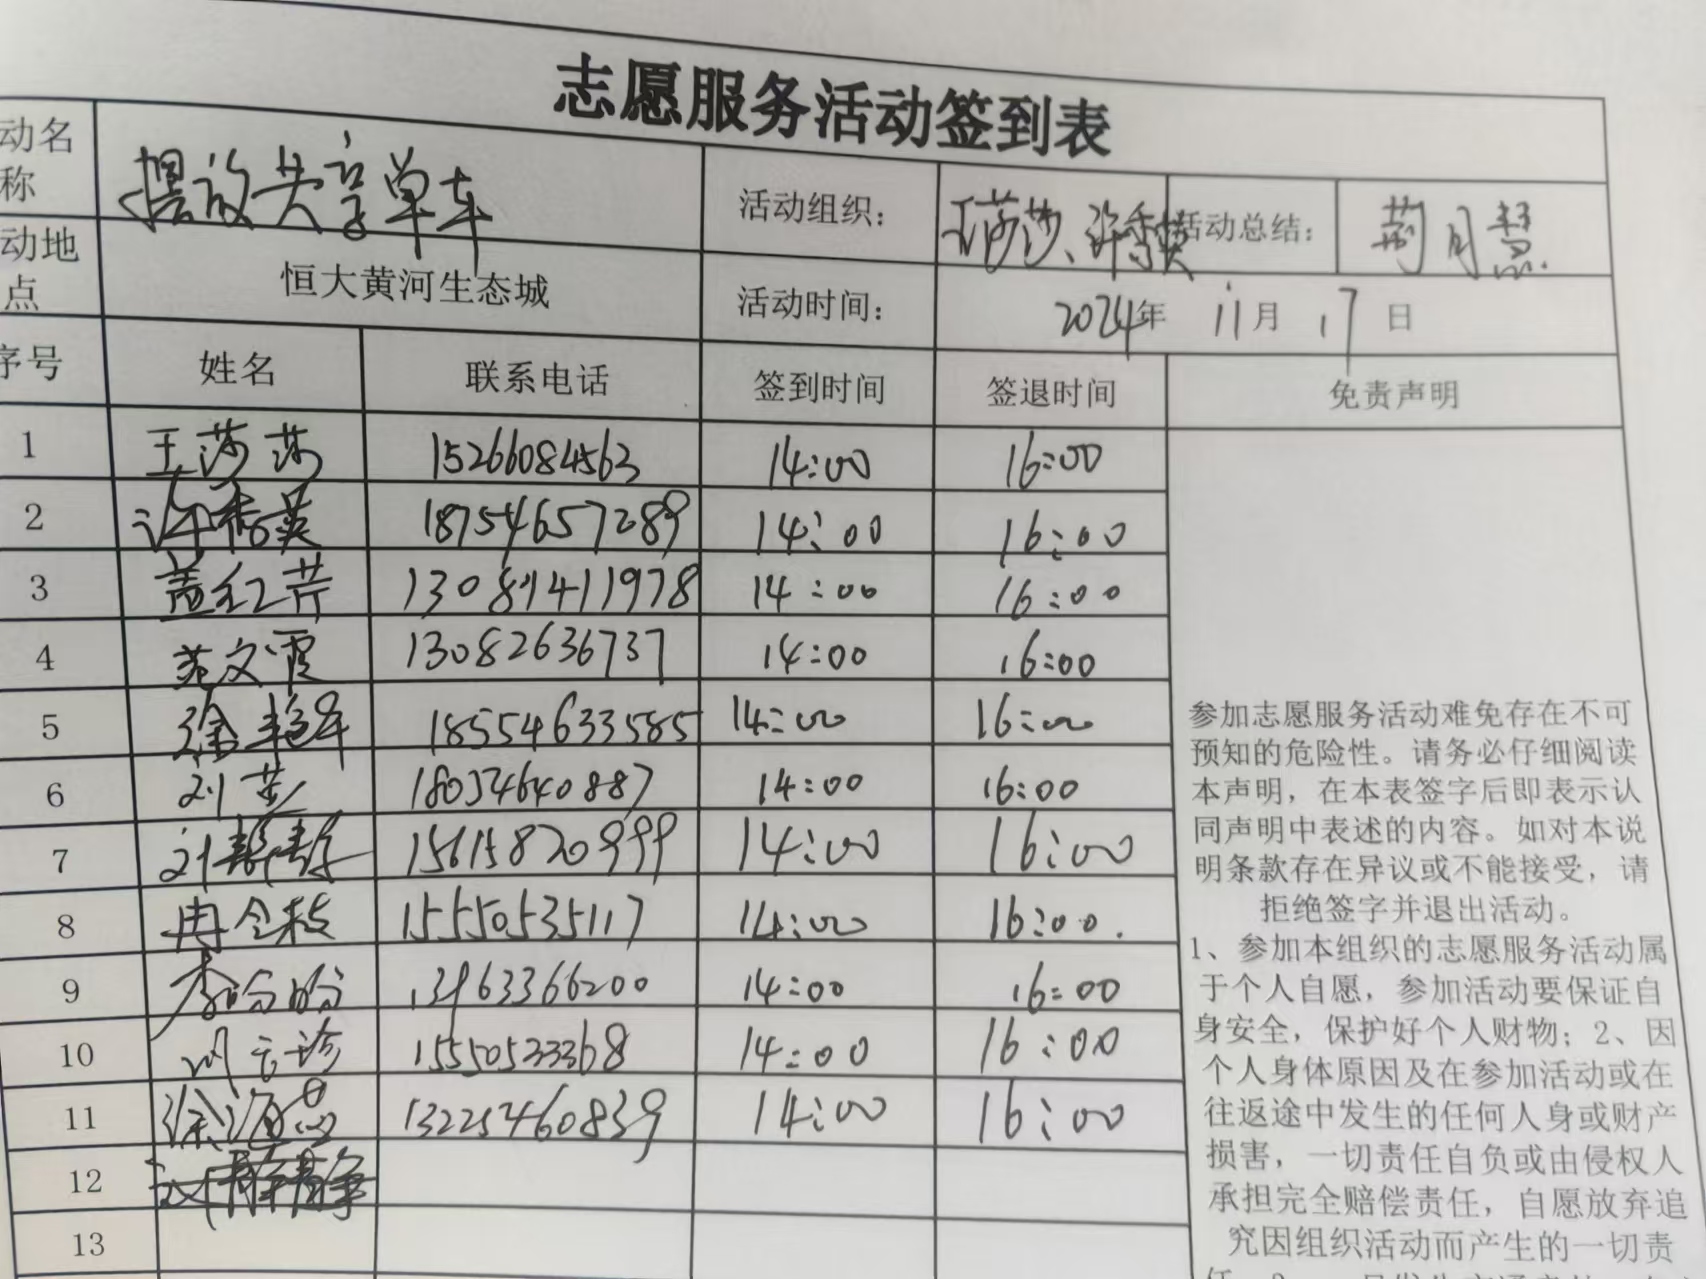 志愿服务活动签到表
动名称 摆放共享单车 活动组织： 王莎莎、许香英 活动总结： 荆月慧
动地点 恒大黄河生态城 活动时间： 2024年 11月 17日
序号 姓名 联系电话 签到时间 签退时间 免责声明
1 王莎莎 15266084563 14:00 16:00
2 许香英 18754657289 14:00 16:00
3 盖红芹 14:00 16:00
4 苑文霞 13082636737 14:00 16:00
5 徐艳军 18554633585 14:00 16:00
6 刘芸 14:00 16:00
7 刘静静 15615820999 14:00 16:00
8 冉令枝 15550535117 14:00 16:00.
9 李盼盼 13963366200 14:00 16:00
10 15550533368 14:00 16:00
11 徐海燕 13225460839 14:00 16:00
12
13
参加志愿服务活动难免存在不可
预知的危险性。请务必仔细阅读
本声明，在本表签字后即表示认
同声明中表述的内容。如对本说
明条款存在异议或不能接受，请
拒绝签字并退出活动。
1、参加本组织的志愿服务活动属
于个人自愿，参加活动要保证自
身安全，保护好个人财物；2、因
个人身体原因及在参加活动或在
往返途中发生的任何人身或财产
损害，一切责任自负或由侵权人
承担完全赔偿责任，自愿放弃追
究因组织活动而产生的一切责